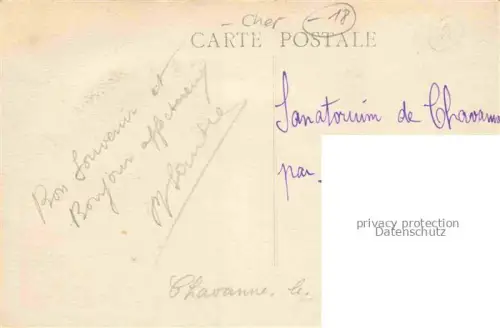 - Cher - 18
CARTE POSTALE
Bon Souvenir et
Bonjour affectueux
Sanatorium de Chavann
par.
privacy protection
Datenschutz
Chavanne. le